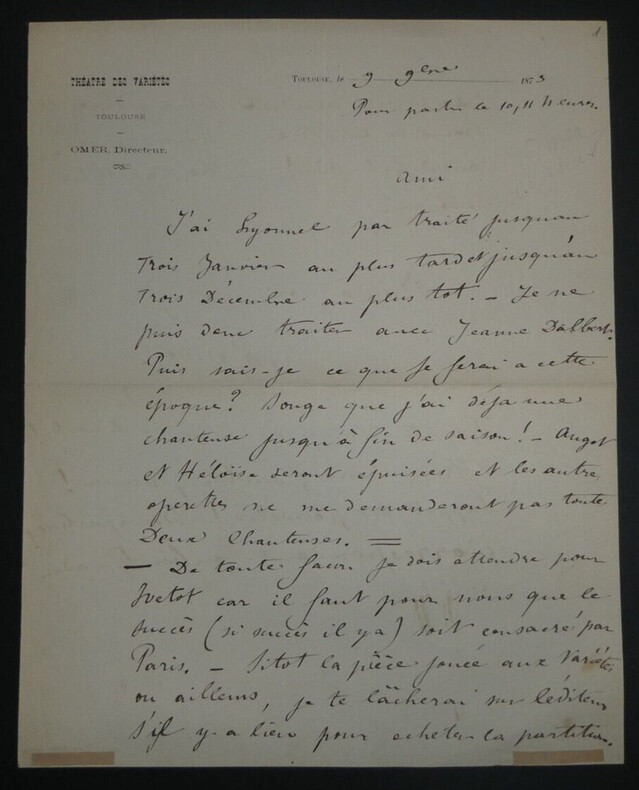 1
THÉATRE DES VARIÉTÉS
TOULOUSE
OMER, Directeur.
TOULOUSE, le 9 9bre 1873
Pour partir le 10, 11 heures.
Ami
J'ai Lyonnel par traité jusquau
Trois Janvier au plus tard et jusqu'au
Trois Décembre au plus tot. — Je ne
puis donc traiter avec Jeanne Dalbert.
Puis sais-je ce que je ferai a cette
époque? Songe que j'ai déja une
chanteuse jusqu'à fin de saison! — Angot
et Héloïse seront épuisées et les autre
operettes ne me demanderont pas toute
Deux Chanteuses. =
— De toute facon je dois attendre pour
Ivetot car il faut pour nous que le
succès (si succès il y a) soit consacré par
Paris. — Sitot la pièce jouée aux Variétés
ou ailleurs, je te lâcherai sur l'éditeur
s'il y a lieu pour acheter la partition.